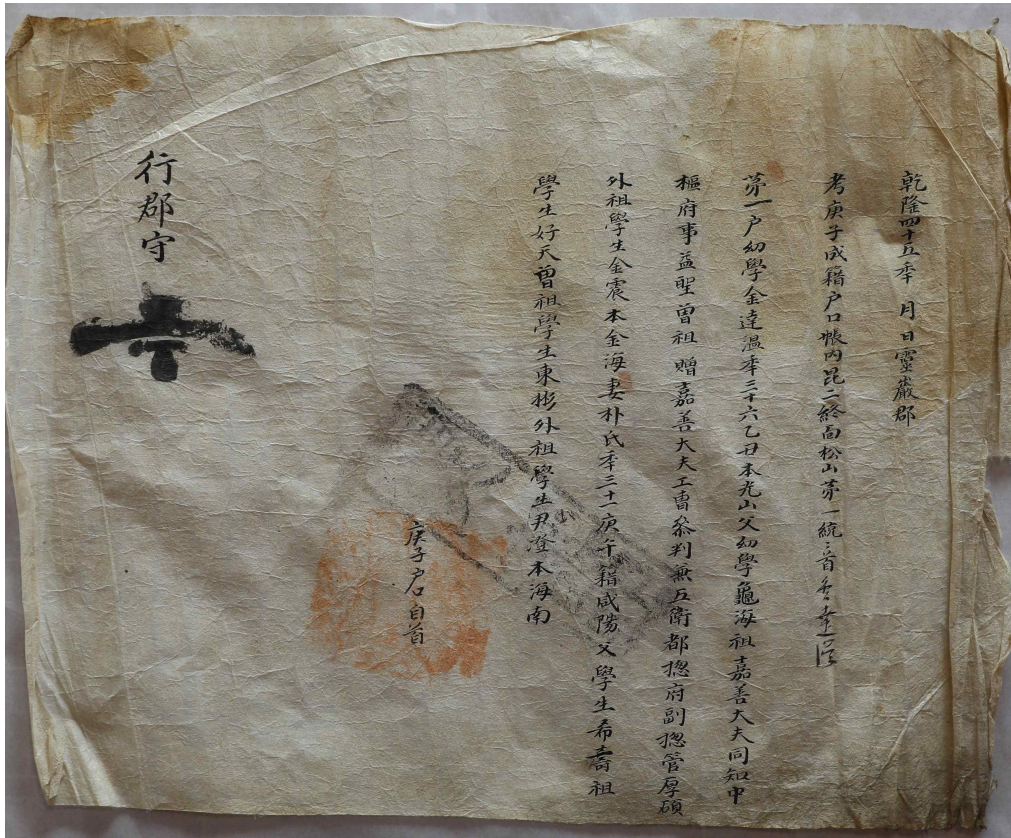 乾隆四十五年 月 日靈巖郡
考庚子成籍户口帳內昆二終面松山第一統〻首金達温
第一户幼學金達温年三十六乙丑本光山父幼學龜海祖嘉善大夫同知中
樞府事益聖曾祖 贈嘉善大夫工曹叅判兼五衛都揔府副揔管厚碩
外祖學生金震本金海妻朴氏年三十一庚午籍咸陽父學生希壽祖
學生好天曾祖學生東彬外祖學生尹澄本海南
庚子户口自首
行郡守